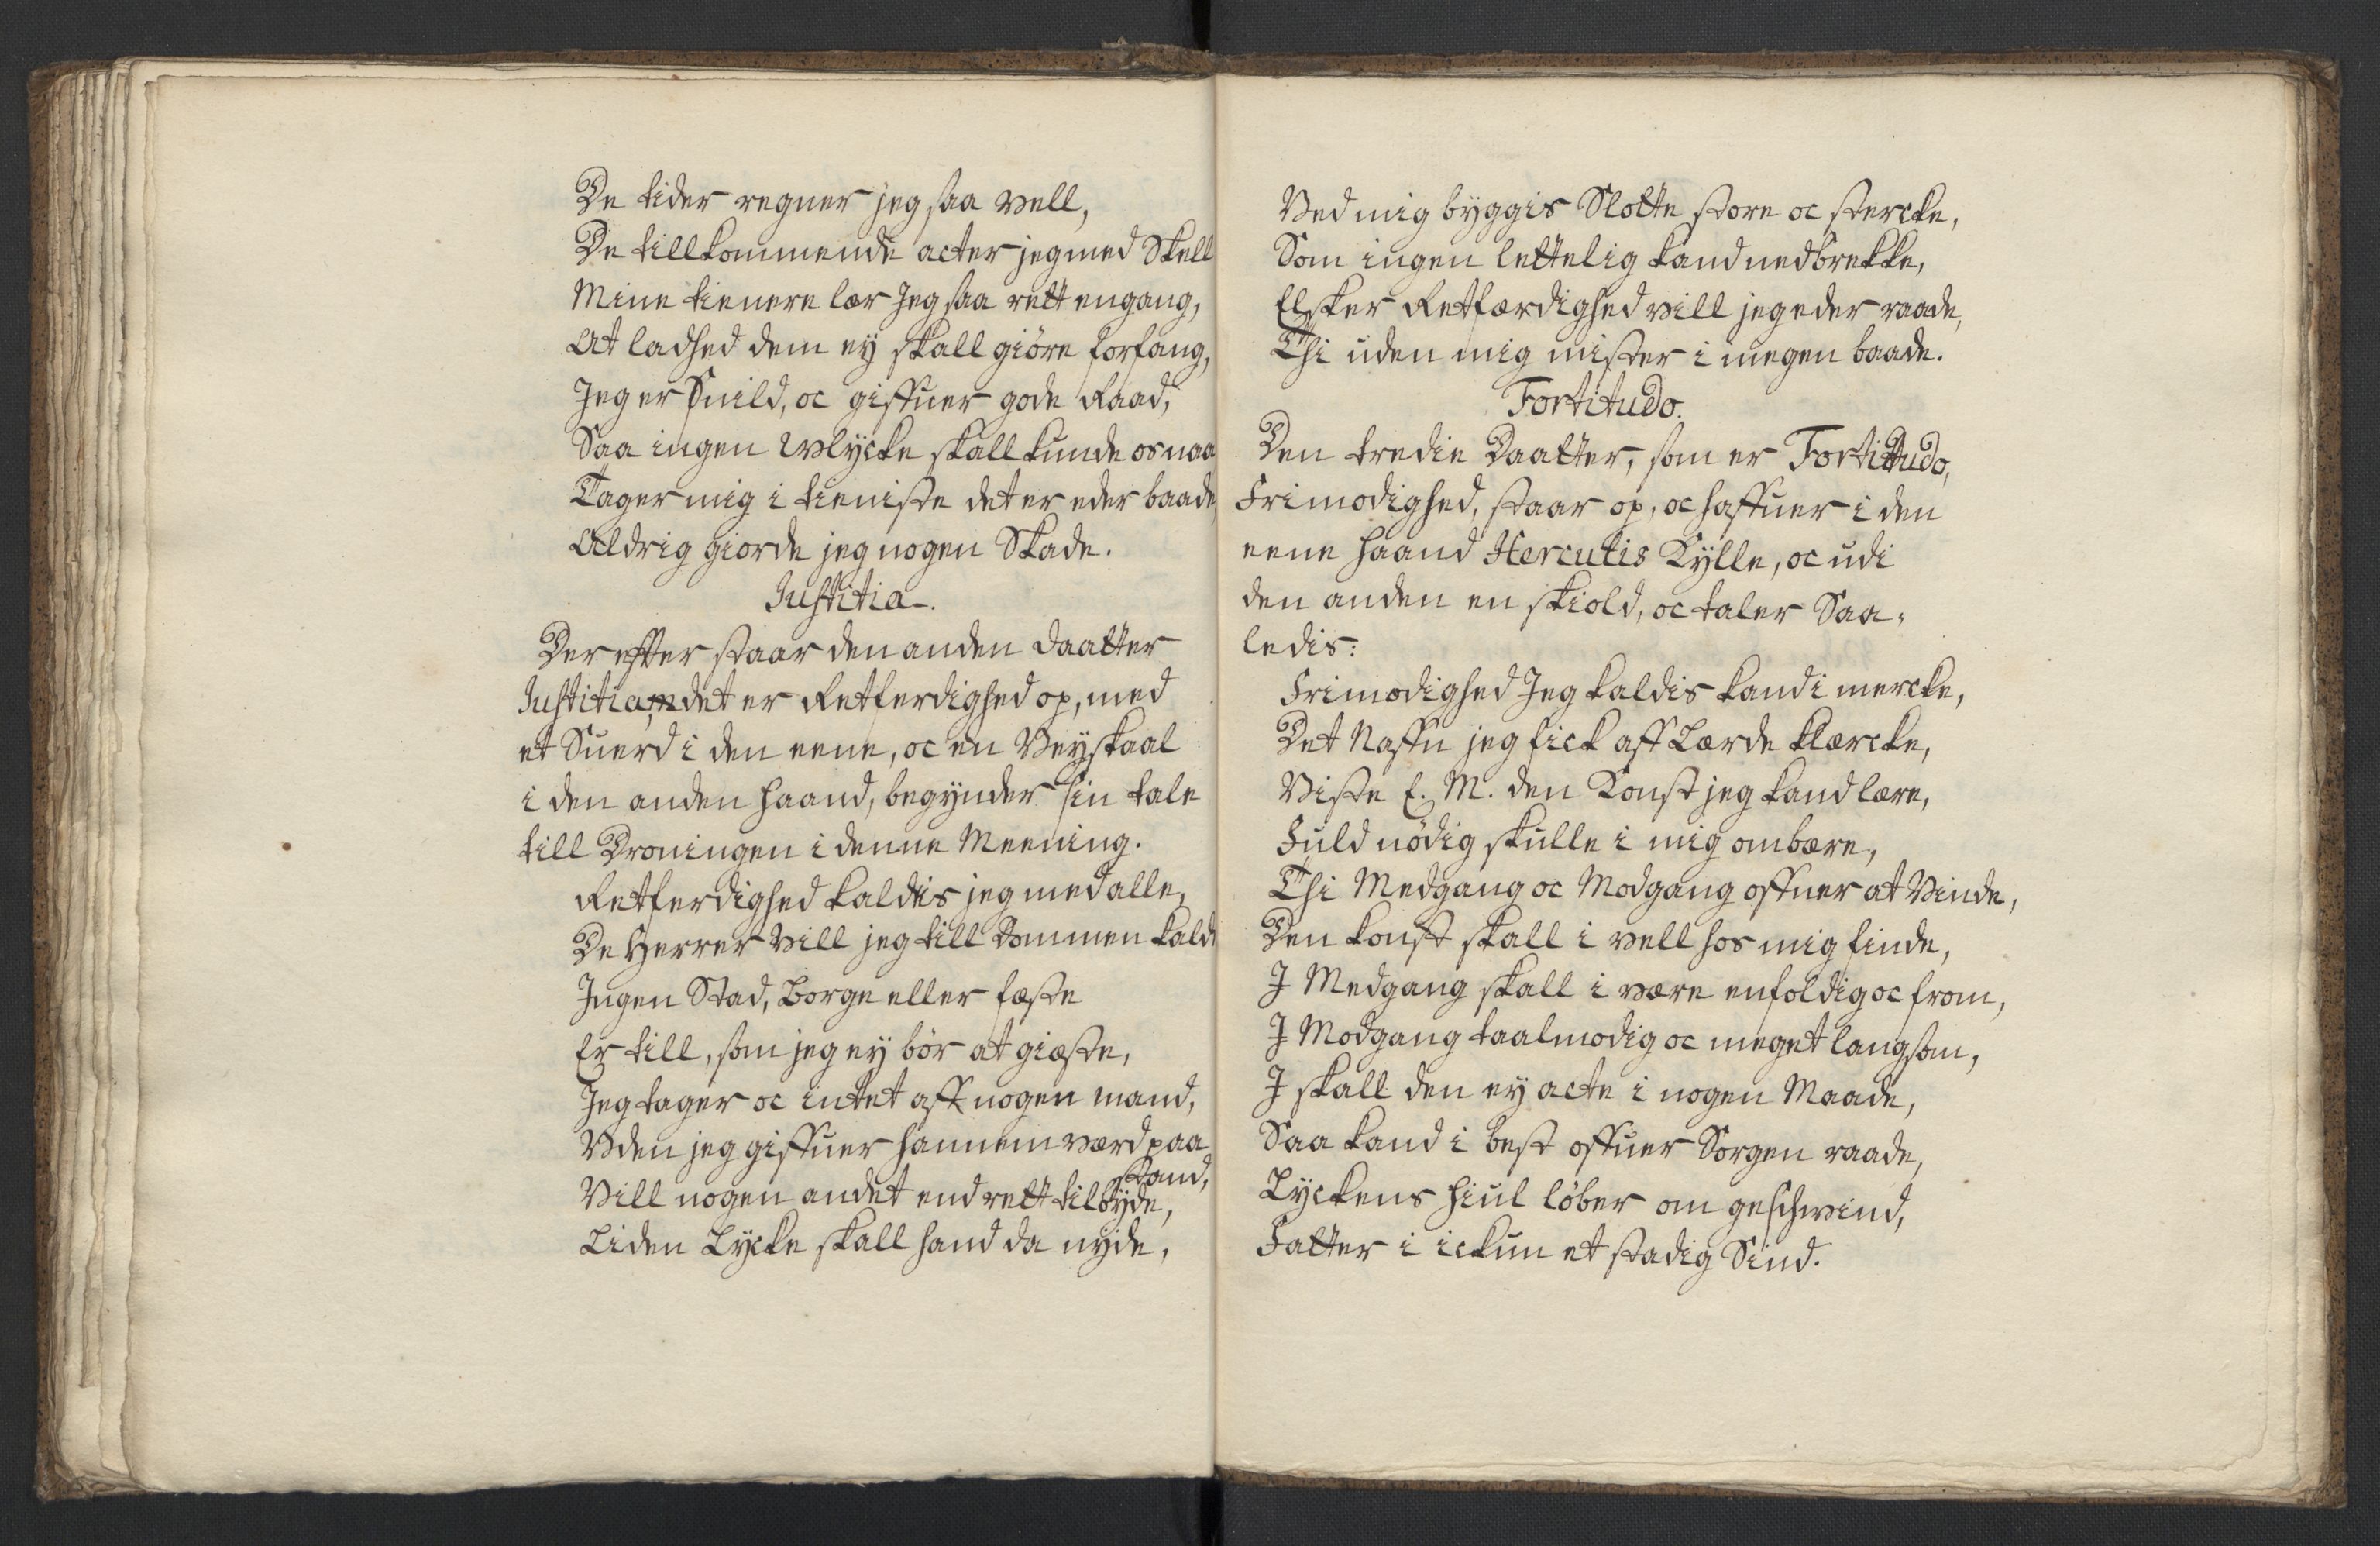 De tider regner jeg saa vell,
De tillkommende acter jeg med Skell
Mine tienere lær Jeg saa rett engang,
At ladhed dem ey skall giöre forfang,
Jeg er Snild, oc giffuer gode Raad,
Saa ingen Wlycke skall kunde os naa
Tager mig i tieniste det er eder baade,
Aldrig giorde jeg nogen Skade.
Justitia.
Der effter staar den anden Daatter
Justitia, det er Retferdighed op, med
et Suerd i den eene, oc en Veyskaal
i den anden haand, begynder sin tale
till Droningen i denne Meening.
Retferdighed kaldis jeg med alle,
De Herrer Vill jeg till Dommen kalde
Ingen Stad, Borge eller fæste
Er till, som jeg ey bör at giæste,
Jeg tager oc intet aff nogen mand,
Vden jeg giffuer hannem værd paa
stand,
Vill nogen andet end rett tilbyde,
Liden Lycke skall hand da nyde,
Ved mig byggis Slotte store oc stercke,
Som ingen lettelig kand nedbrekke,
Elsker Retfærdighed vill jeg eder raade,
Thi uden mig mister i megen baade.
Fortitudo.
Den tredie Daatter, som er Fortitudo,
Frimodighed, staar op, oc haffuer i den
eene haand Herculis Kylle, oc udi
den anden en skiold, oc taler Saa-
ledis:
Frimodighed Jeg kaldis kand i mercke,
Det Naffn jeg fick aff Lærde klærcke,
Viste E. M. den Konst jeg kand lære,
Fuld nödig skulle i mig ombære,
Thi Medgang oc Modgang offuer at Vinde,
Den konst skall i vell hos mig finde,
J Medgang skall i være enfoldig oc from,
J Modgang taalmodig oc meget langsom,
J skall den ey acte i nogen Maade,
Saa kand i best offuer Sorgen raade,
Lyckens hiul löber om geschwind,
Fatter i ickun et stadig Sind.